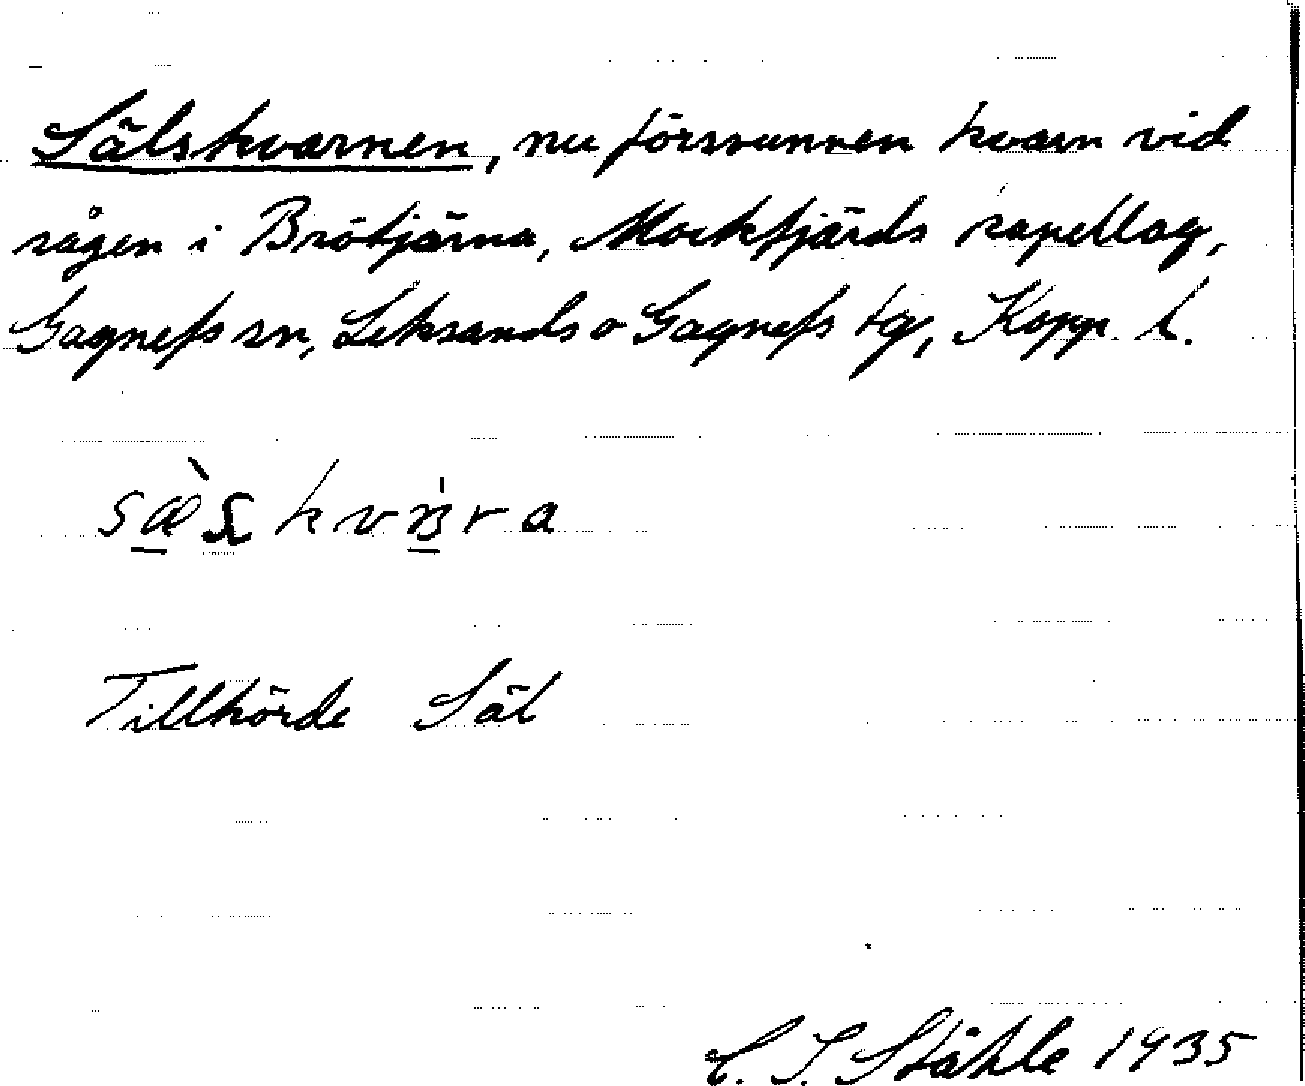 Sälskvarnen, nu försvunnen kvarn vid
sågen i Brötjärna, Mockfjärds kapellag,
Gagnefs sn, Leksands o Gagnefs tg, Kopp. l.
Tillhörde Säl
C. I. Ståhle 1935